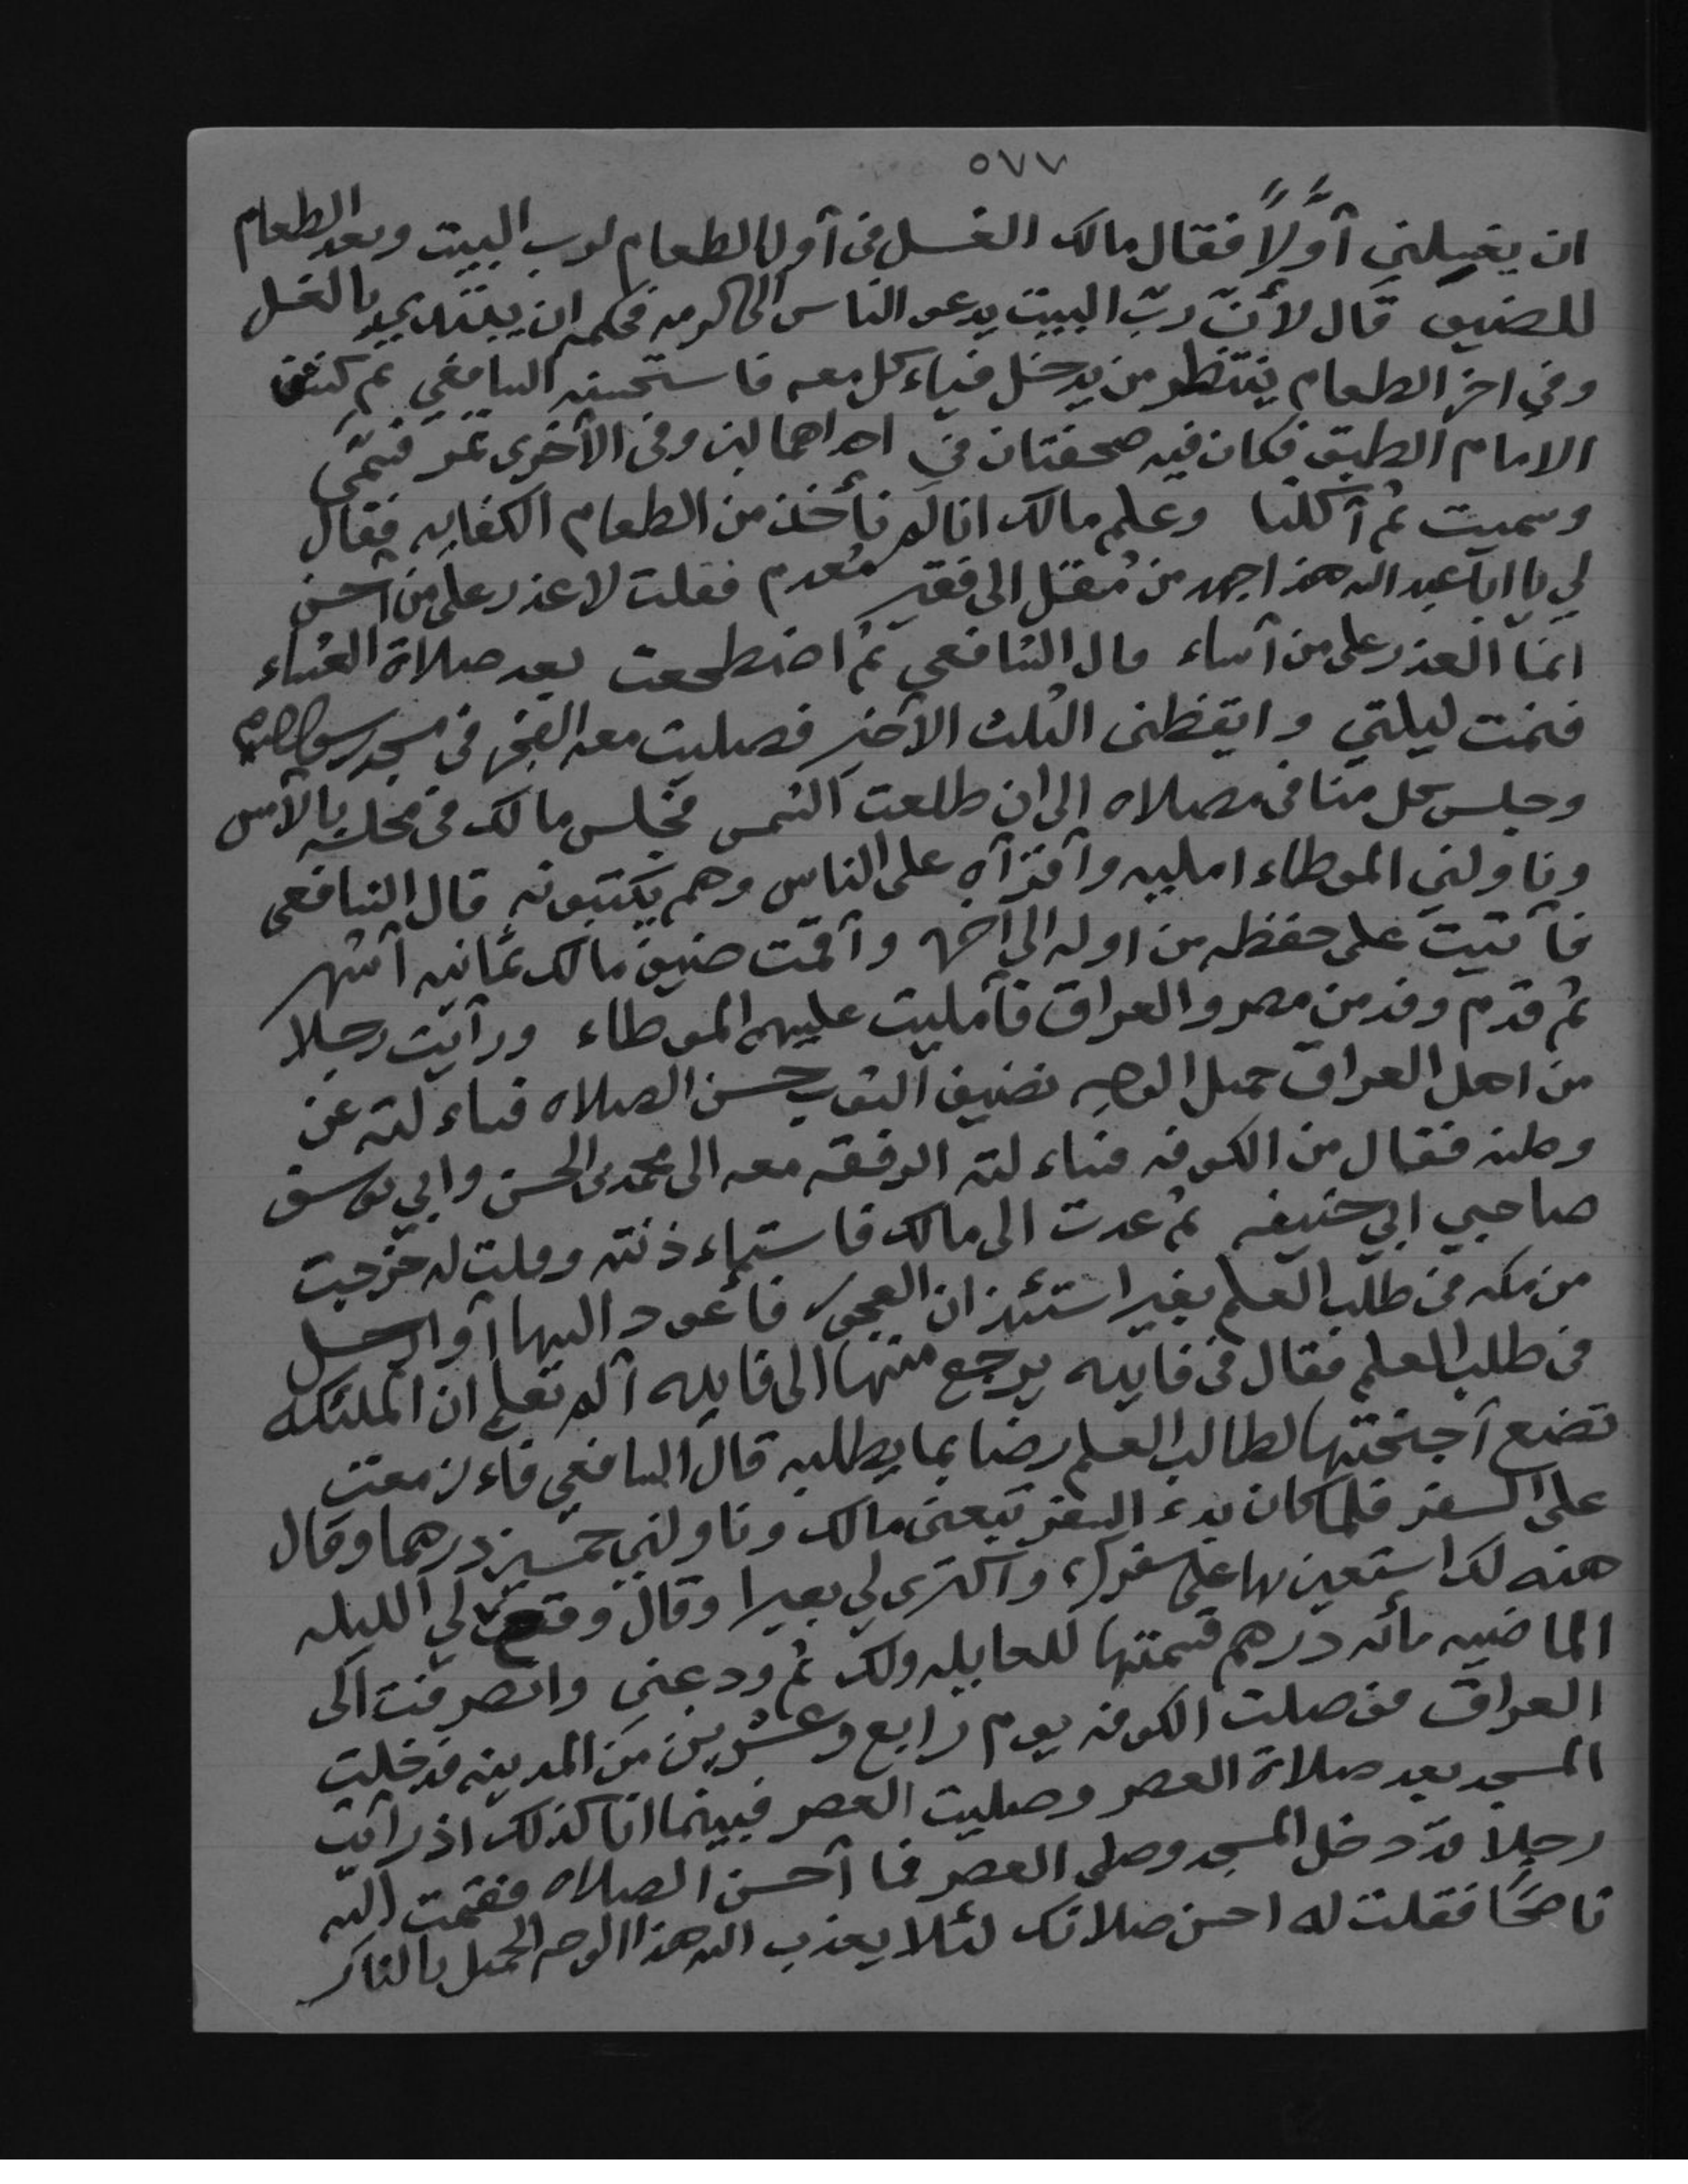 ٥٧٧
ان يغسلني أوّلاً فقال مالك الغسل في أول الطعام لرب البيت وبعد الطعام
للضيف قال لأنّ ربّ البيت يدعو الناس الى كرمه فحكمه ان يبتدي بالغسل
وفي اخر الطعام ينتظر من يدخل فياءكل معه فاستحسنه الشافعي ثم كشف
الامام الطبق فكان فيه صحفتان في احداهما لبن وفي الأخرى تمر فسمّى
وسميت ثم أكلنا وعلم مالك انا لم نأخذ من الطعام الكفايه فقال
لي يا ابا عبد الله هذا جهد من مُقل الى فقير مُعدم فقلت لا عذر على من أحسن
انما العذر على من أساء قال الشافعي ثم اضطجعت بعد صلاة العشاء
فنمت ليلتي وايقظني الثلث الأخير فصليت معه الفجر في مسجد رسول الله
وجلس كل منا في مصلاه الى ان طلعت الشمس فجلس مالك في مجلسه بالأمس
وناولني الموطاء امليه وأقرأه على الناس وهم يكتبونه قال الشافعي
فأتيت على حفظه من اوله الى آخره وأقمت ضيف مالك ثمانيه أشهر
ثم قدم وفد من مصر والعراق فأمليت عليهم الموطاء ورأيت رجلا
من اهل العراق جميل الوجه نضيف الثوب حسن الصلاه فساءلته عن
وطنه فقال من الكوفه فساءلته الرفقه معه الى محمد بن الحسن وابي يوسف
صاحبي ابي حنيفه ثم عدت الى مالك فاستاءذنته وقلت له خرجت
من مكه في طلب العلم بغير استئذان العجوز فأعود اليها أو ارحل
في طلب العلم فقال في فايده يرجع منها الى فايده ألم تعلم ان الملئكه
تضع أجنحتها لطالب العلم رضا بما يطلبه قال الشافعي فاءزمعت
على السفر فلما كان بدء السفر تبعني مالك وناولني خمسين درهما وقال
هذه لك استعين بها على سفرك واكترى لي بعيرا وقال وقع لي الليله
الماضيه مائه درهم قسمتها للعايله ولك ثم ودعني وانصرفت الى
العراق فوصلت الكوفه يوم رابع وعشرين من المدينه فدخلت
المسجد بعد صلاة العصر وصليت العصر فبينما انا كذلك اذ رأيت
رجلا قد دخل المسجد وصلى العصر فما أحسن الصلاه فقمت اليه
ناصحًا فقلت له احسن صلاتك لئلا يعذب الله هذا الوجه الجميل بالنار